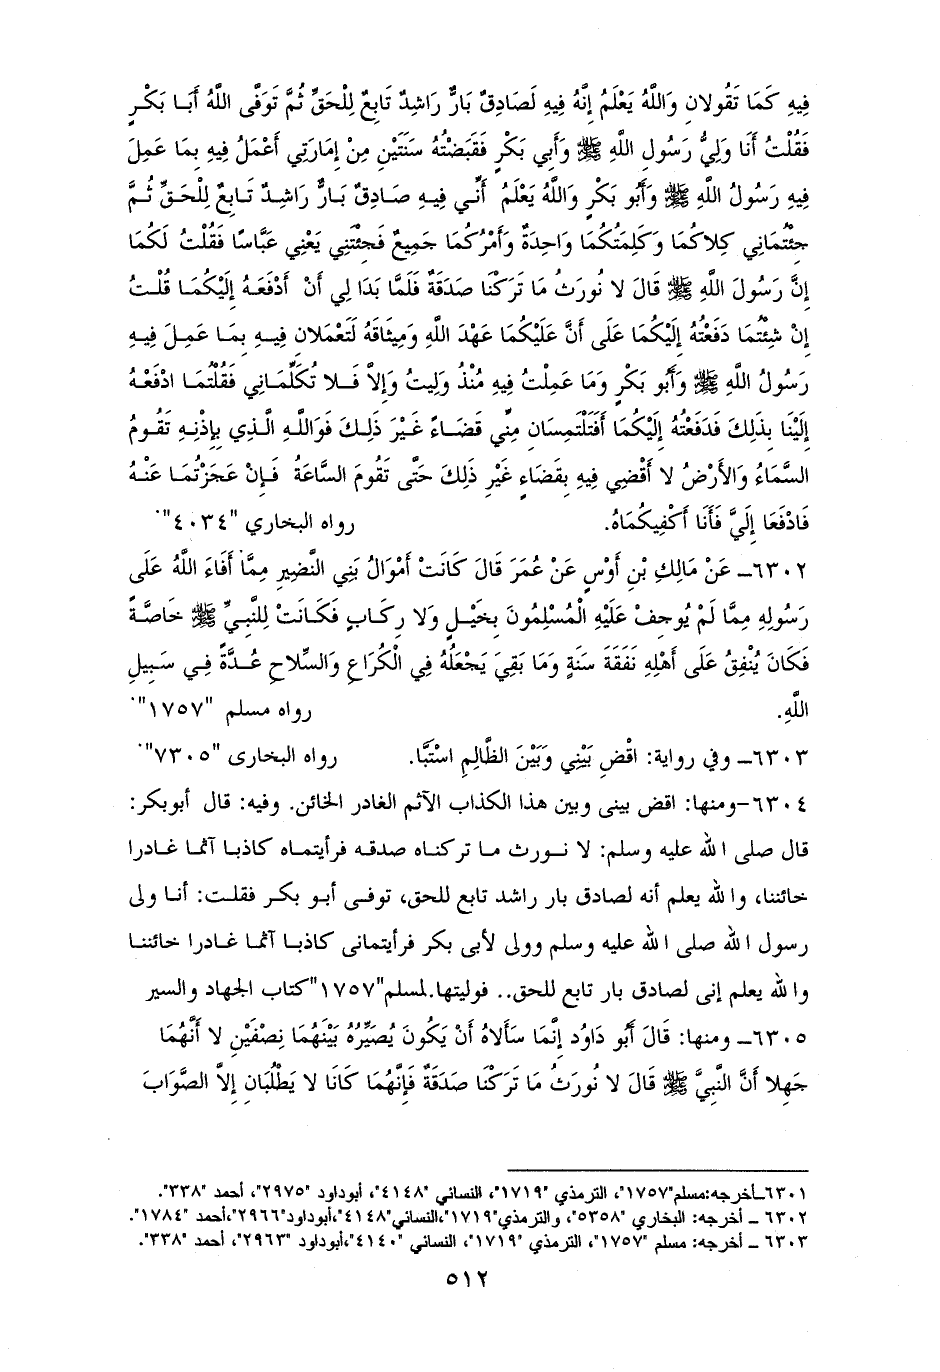 فِيهِ كَمَا تَقُولانِ وَاللَّهُ يَعْلَمُ إِنَّهُ فِيهِ لَصَادِقٌ بَارٌّ رَاشِدٌ تَابِعٌ لِلْحَقِّ ثُمَّ تَوَفَّى اللَّهُ أَبَا بَكْرٍ
فَقُلْتُ أَنَا وَلِيُّ رَسُولِ اللَّهِ ﷺ وَأَبِي بَكْرٍ فَقَبَضْتُهُ سَنَتَيْنِ مِنْ إِمَارَتِي أَعْمَلُ فِيهِ بِمَا عَمِلَ
فِيهِ رَسُولُ اللَّهِ ﷺ وَأَبُو بَكْرٍ وَاللَّهُ يَعْلَمُ أَنِّي فِيهِ صَادِقٌ بَارٌّ رَاشِدٌ تَابِعٌ لِلْحَقِّ ثُمَّ
جِئْتُمَانِي كِلاكُمَا وَكَلِمَتُكُمَا وَاحِدَةٌ وَأَمْرُكُمَا جَمِيعٌ فَجِئْتَنِي يَعْنِي عَبَّاسًا فَقُلْتُ لَكُمَا
إِنَّ رَسُولَ اللَّهِ ﷺ قَالَ لا نُورَثُ مَا تَرَكْنَا صَدَقَةٌ فَلَمَّا بَدَا لِي أَنْ أَدْفَعَهُ إِلَيْكُمَا قُلْتُ
إِنْ شِئْتُمَا دَفَعْتُهُ إِلَيْكُمَا عَلَى أَنَّ عَلَيْكُمَا عَهْدَ اللَّهِ وَمِيثَاقَهُ لَتَعْمَلانِ فِيهِ بِمَا عَمِلَ فِيهِ
رَسُولُ اللَّهِ ﷺ وَأَبُو بَكْرٍ وَمَا عَمِلْتُ فِيهِ مُنْذُ وَلِيتُ وَإِلاَّ فَلا تُكَلِّمَانِي فَقُلْتُمَا ادْفَعْهُ
إِلَيْنَا بِذَلِكَ فَدَفَعْتُهُ إِلَيْكُمَا أَفَتَلْتَمِسَانِ مِنِّي قَضَاءً غَيْرَ ذَلِكَ فَوَاللَّهِ الَّذِي بِإِذْنِهِ تَقُومُ
السَّمَاءُ وَالأَرْضُ لا أَقْضِي فِيهِ بِقَضَاءٍ غَيْرِ ذَلِكَ حَتَّى تَقُومَ السَّاعَةُ فَإِنْ عَجَزْتُمَا عَنْهُ
فَادْفَعَا إِلَيَّ فَأَنَا أَكْفِيكُمَاهُ. رواه البخاري "٤٠٣٤".
٦٣٠٢ــ عَنْ مَالِكِ بْنِ أَوْسٍ عَنْ عُمَرَ قَالَ كَانَتْ أَمْوَالُ بَنِي النَّضِيرِ مِمَّا أَفَاءَ اللَّهُ عَلَى
رَسُولِهِ مِمَّا لَمْ يُوجِفْ عَلَيْهِ الْمُسْلِمُونَ بِخَيْلٍ وَلا رِكَابٍ فَكَانَتْ لِلنَّبِيِّ ﷺ خَاصَّةً
فَكَانَ يُنْفِقُ عَلَى أَهْلِهِ نَفَقَةَ سَنَةٍ وَمَا بَقِيَ يَجْعَلُهُ فِي الْكُرَاعِ وَالسِّلاحِ عُدَّةً فِي سَبِيلِ
اللَّهِ. رواه مسلم "١٧٥٧".
٦٣٠٣ــ وفي رواية: اقْضِ بَيْنِي وَبَيْنَ الظَّالِمِ اسْتَبَّا. رواه البخارى "٧٣٠٥".
٦٣٠٤-ومنها: اقض بينى وبين هذا الكذاب الآثم الغادر الخائن. وفيه: قال أبوبكر:
قال صلى الله عليه وسلم: لا نورث ما تركناه صدقه فرأيتماه كاذبا آثما غادرا
خائننا، والله يعلم أنه لصادق بار راشد تابع للحق، توفى أبو بكر فقلت: أنا ولى
رسول الله صلى الله عليه وسلم وولى لأبى بكر فرأيتمانى كاذبا آثما غادرا خائننا
والله يعلم إنى لصادق بار تابع للحق.. فوليتها.لمسلم"١٧٥٧"كتاب الجهاد والسير
٦٣٠٥ــ ومنها: قَالَ أَبُو دَاوُد إِنَّمَا سَأَلاهُ أَنْ يَكُونَ يُصَيِّرُهُ بَيْنَهُمَا نِصْفَيْنِ لا أَنَّهُمَا
جَهِلا أَنَّ النَّبِيَّ ﷺ قَالَ لا نُورَثُ مَا تَرَكْنَا صَدَقَةٌ فَإِنَّهُمَا كَانَا لا يَطْلُبَانِ إِلاَّ الصَّوَابَ
٦٣٠١ــأخرجه:مسلم"١٧٥٧"، الترمذي "١٧١٩"، النسائي "٤١٤٨"، أبوداود "٢٩٧٥"، أحمد "٣٣٨".
٦٣٠٢ ــ أخرجه: البخاري "٥٣٥٨"، والترمذي"١٧١٩"،النسائي"٤١٤٨"،أبوداود"٢٩٦٦"،أحمد "١٧٨٤".
٦٣٠٣ ــ أخرجه: مسلم "١٧٥٧"، الترمذي "١٧١٩"، النسائي "٤١٤٠"،أبوداود "٢٩٦٣"، أحمد "٣٣٨".
٥١٢